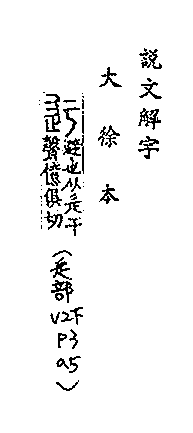 說文解字
大徐本
迂 避也从辵于
聲憶俱切
(辵部 V2下 P3 a5)